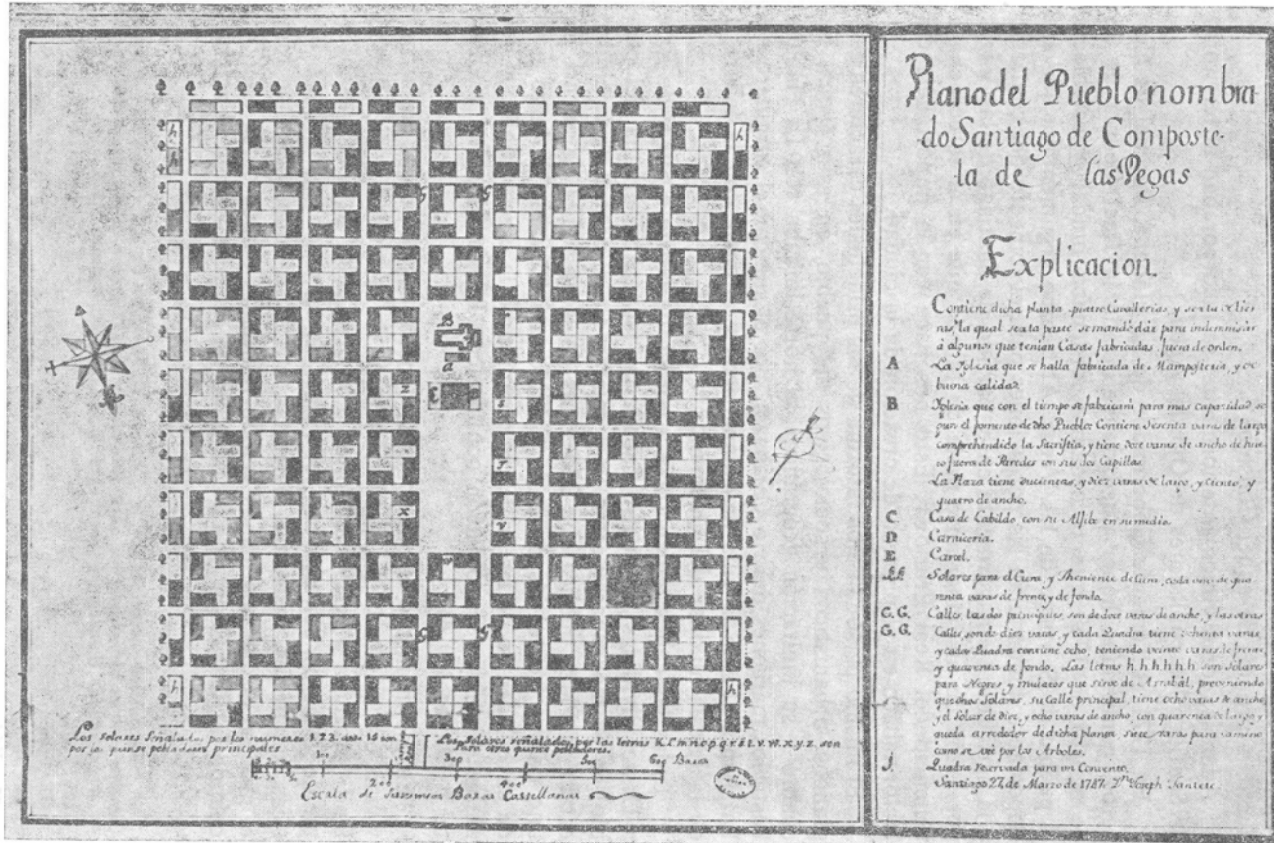 Plano del Pueblo nombra
do Santiago de Composte-
la de las Vegas
Explicacion.
Contiene dicha planta quatro Cavallerias, y sexta de tier
ras, la qual sexta parte se mandò dàr para indemnisar
à algunos que tenian Casas fabricadas fuera de orden.
A La Iglesia que se halla fabricada de Mamposteria, y de
buena calidad
B Iglesia que con el tiempo se fabricarà para mas capacidad, se
gun el fomento de dho Pueblo: Contiene sesenta varas de largo
comprehendido la Sacristia, y tiene doce varas de ancho de hue
co fuera de Paredes con sus dos Capillas.
La Plaza tiene ducientas, y diez varas de largo, y ciento, y
quatro de ancho.
C Casa de Cabildo con su Alfibe en su medio.
D Carniceria.
E Carcel.
Solares para el Cura, y Theniente de Cura, cada uno de qua
renta varas de frente, y de fondo.
G. G. Calles las dos principales, son de doce varas de ancho, y las otras
G. G. Calles, son de diez varas, y cada Quadra tiene ochenta varas,
y cada Quadra contiene ocho, teniendo veinte varas de frente,
y quarenta de fondo. Las letras h h h h h h son solares
para Negros y mulatos que sirve de Arrabàl, previniendo
que dhos Solares, su Calle principal, tiene ocho varas de ancho,
y el solar de diez, y ocho varas de ancho, con quarenta de largo y
queda arrededor de dicha planta siete varas para camino
como se vé por los Arboles.
J. Quadra reservada para un Convento.
Santiago 27, de Marzo de 1787. Dn Joseph
h
h
h
G
G
B
a
E
z
s
x
v
G
G
h
h
Los solares señalados por los numeros 1. 2. 3. son
por los pobladores principales
Los solares señalados, por las letras K. L. m. n. o. p. q. r. s. t. v. w. x. y. z. son
para otros pobladores.
100
200
300
400
500
600 Baras
Escala de Baras Castellanas